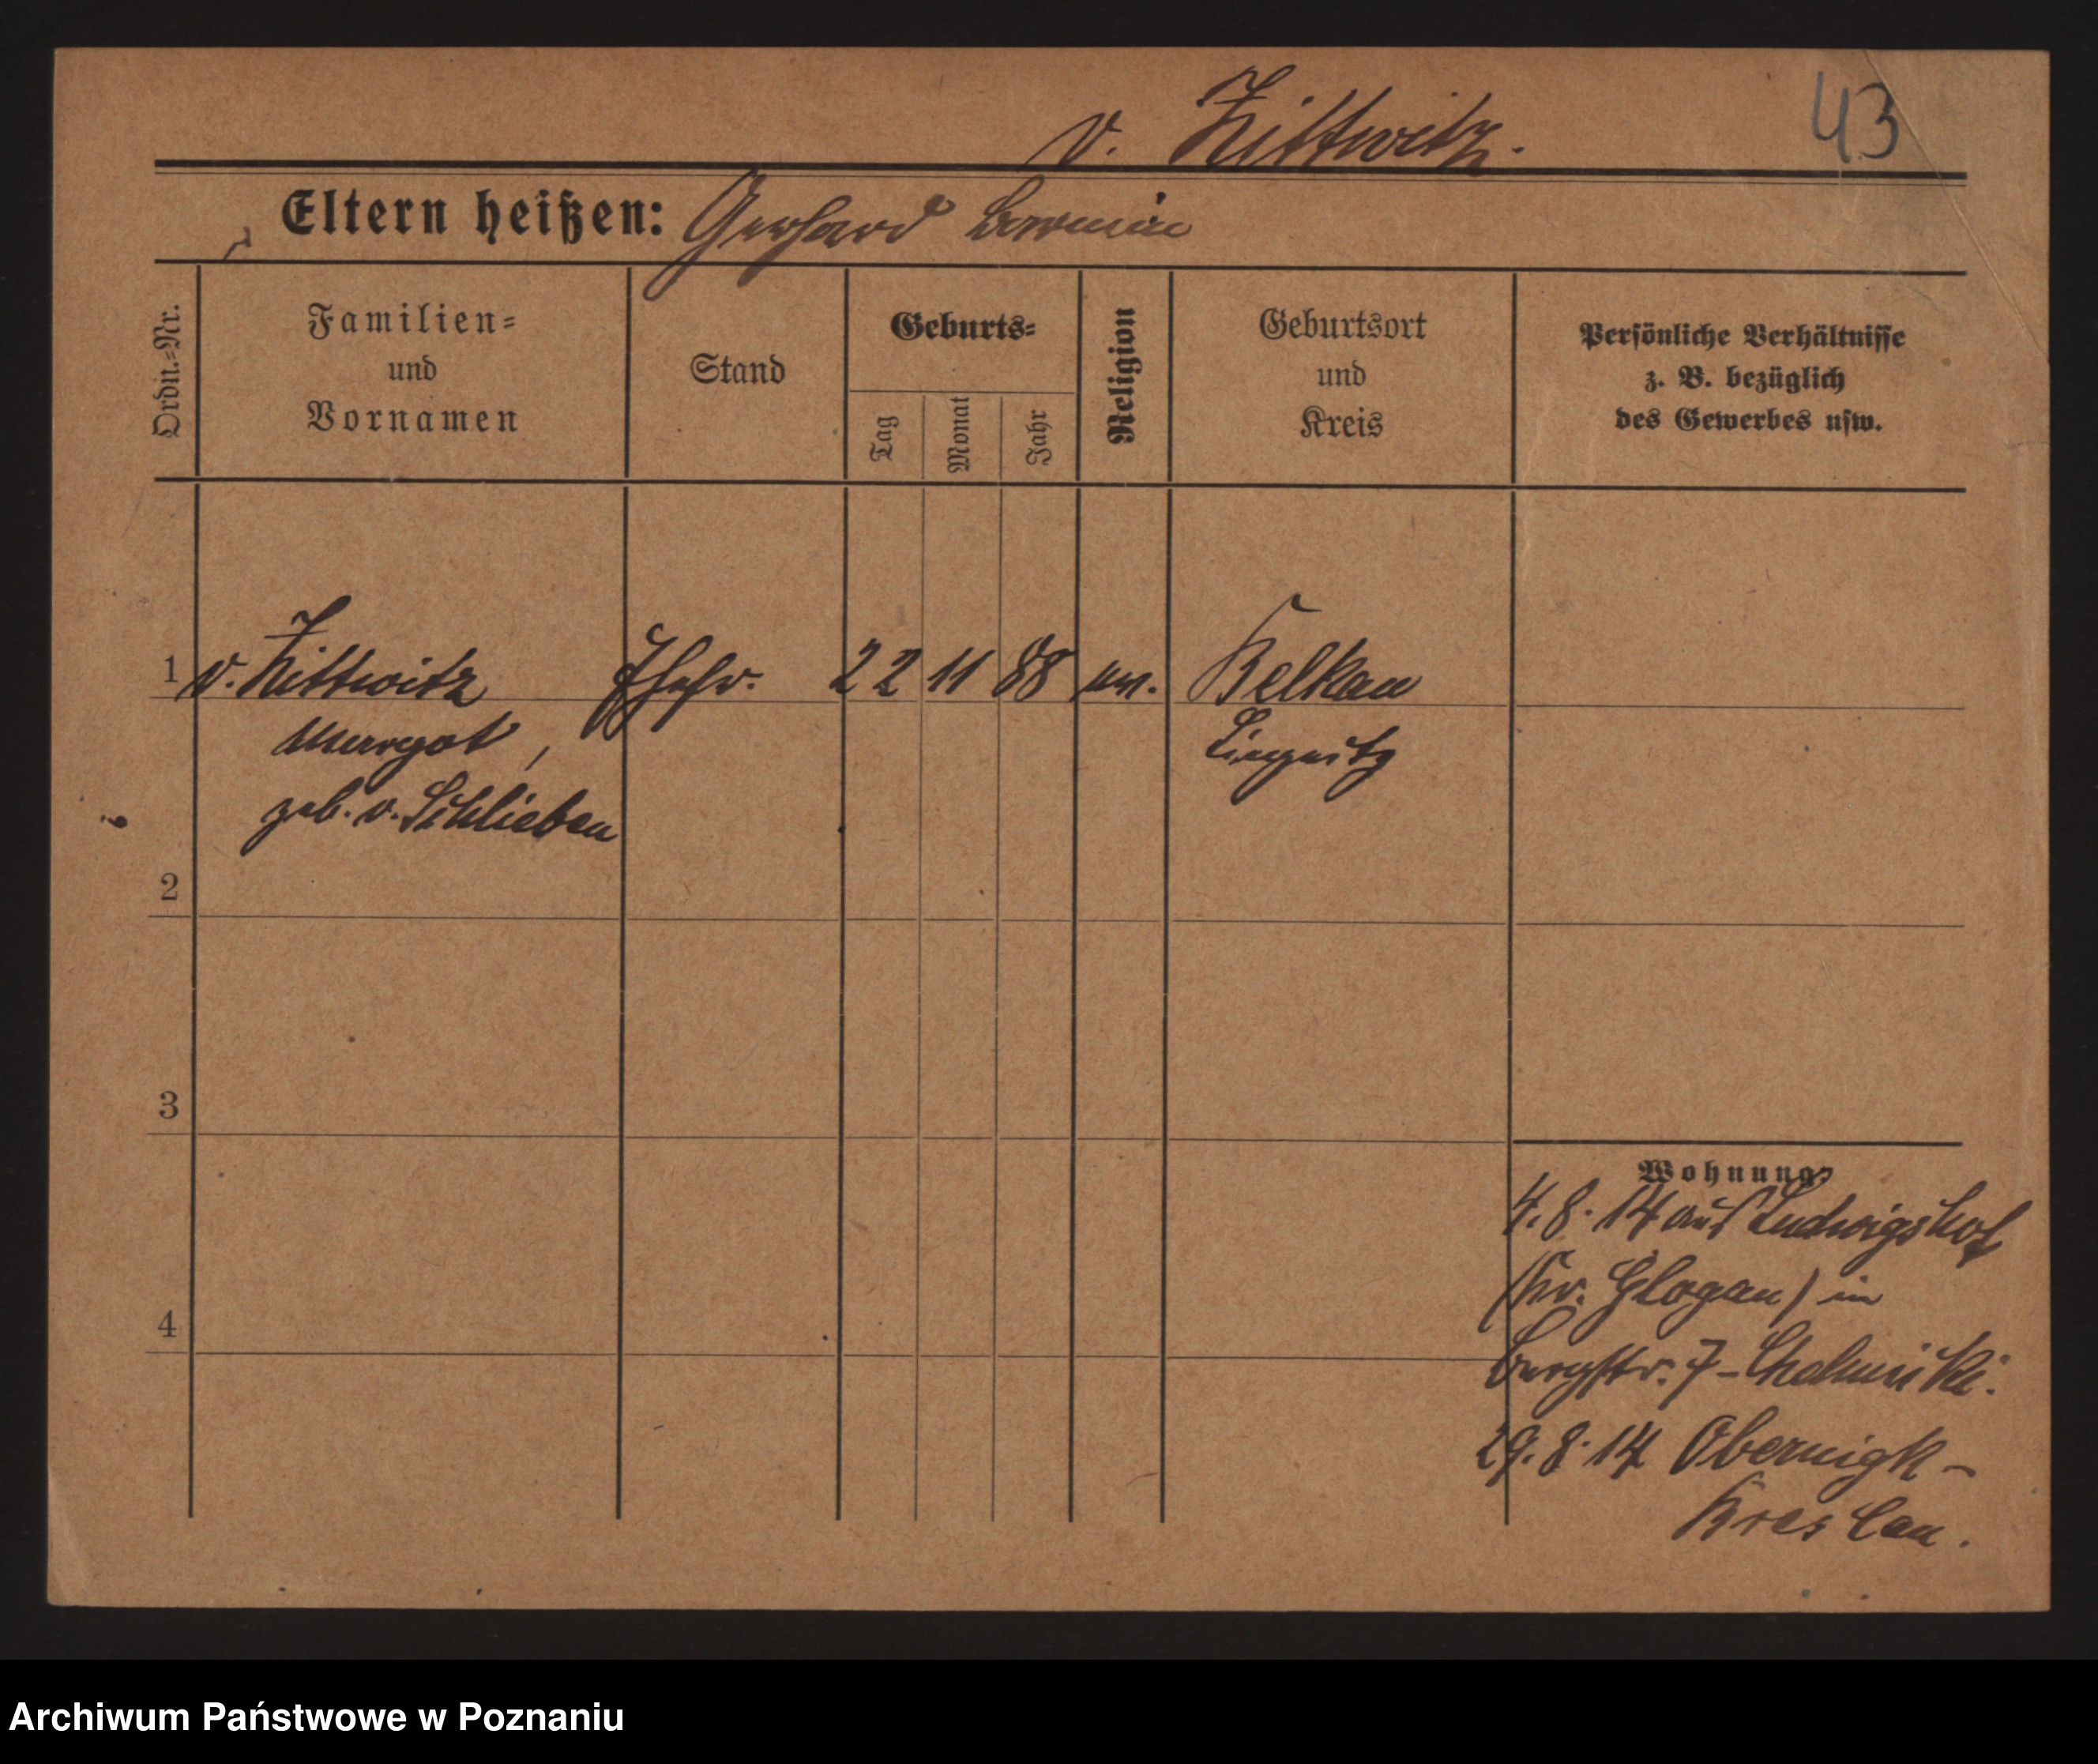 v. Zittwitz.
43
Eltern heißen: Gerhard
Ordn.=Nr.
Familien=
und
Vornamen
Stand
Geburts=
Tag
Monat
Jahr
Religion
Geburtsort
und
Kreis
Persönliche Verhältnisse
z. B. bezüglich
des Gewerbes usw.
1 v. Zittwitz Ehefr. 22 11 88 Belkau
Margot, Liegnitz
geb. v. Schlieben
2
3
Wohnung
4.8.14 aus Ludwigshof
(Kr. Glogau) in
4
Bergstr. 7 -
29.8.14 Obernigk -
Breslau.
Archiwum Państwowe w Poznaniu